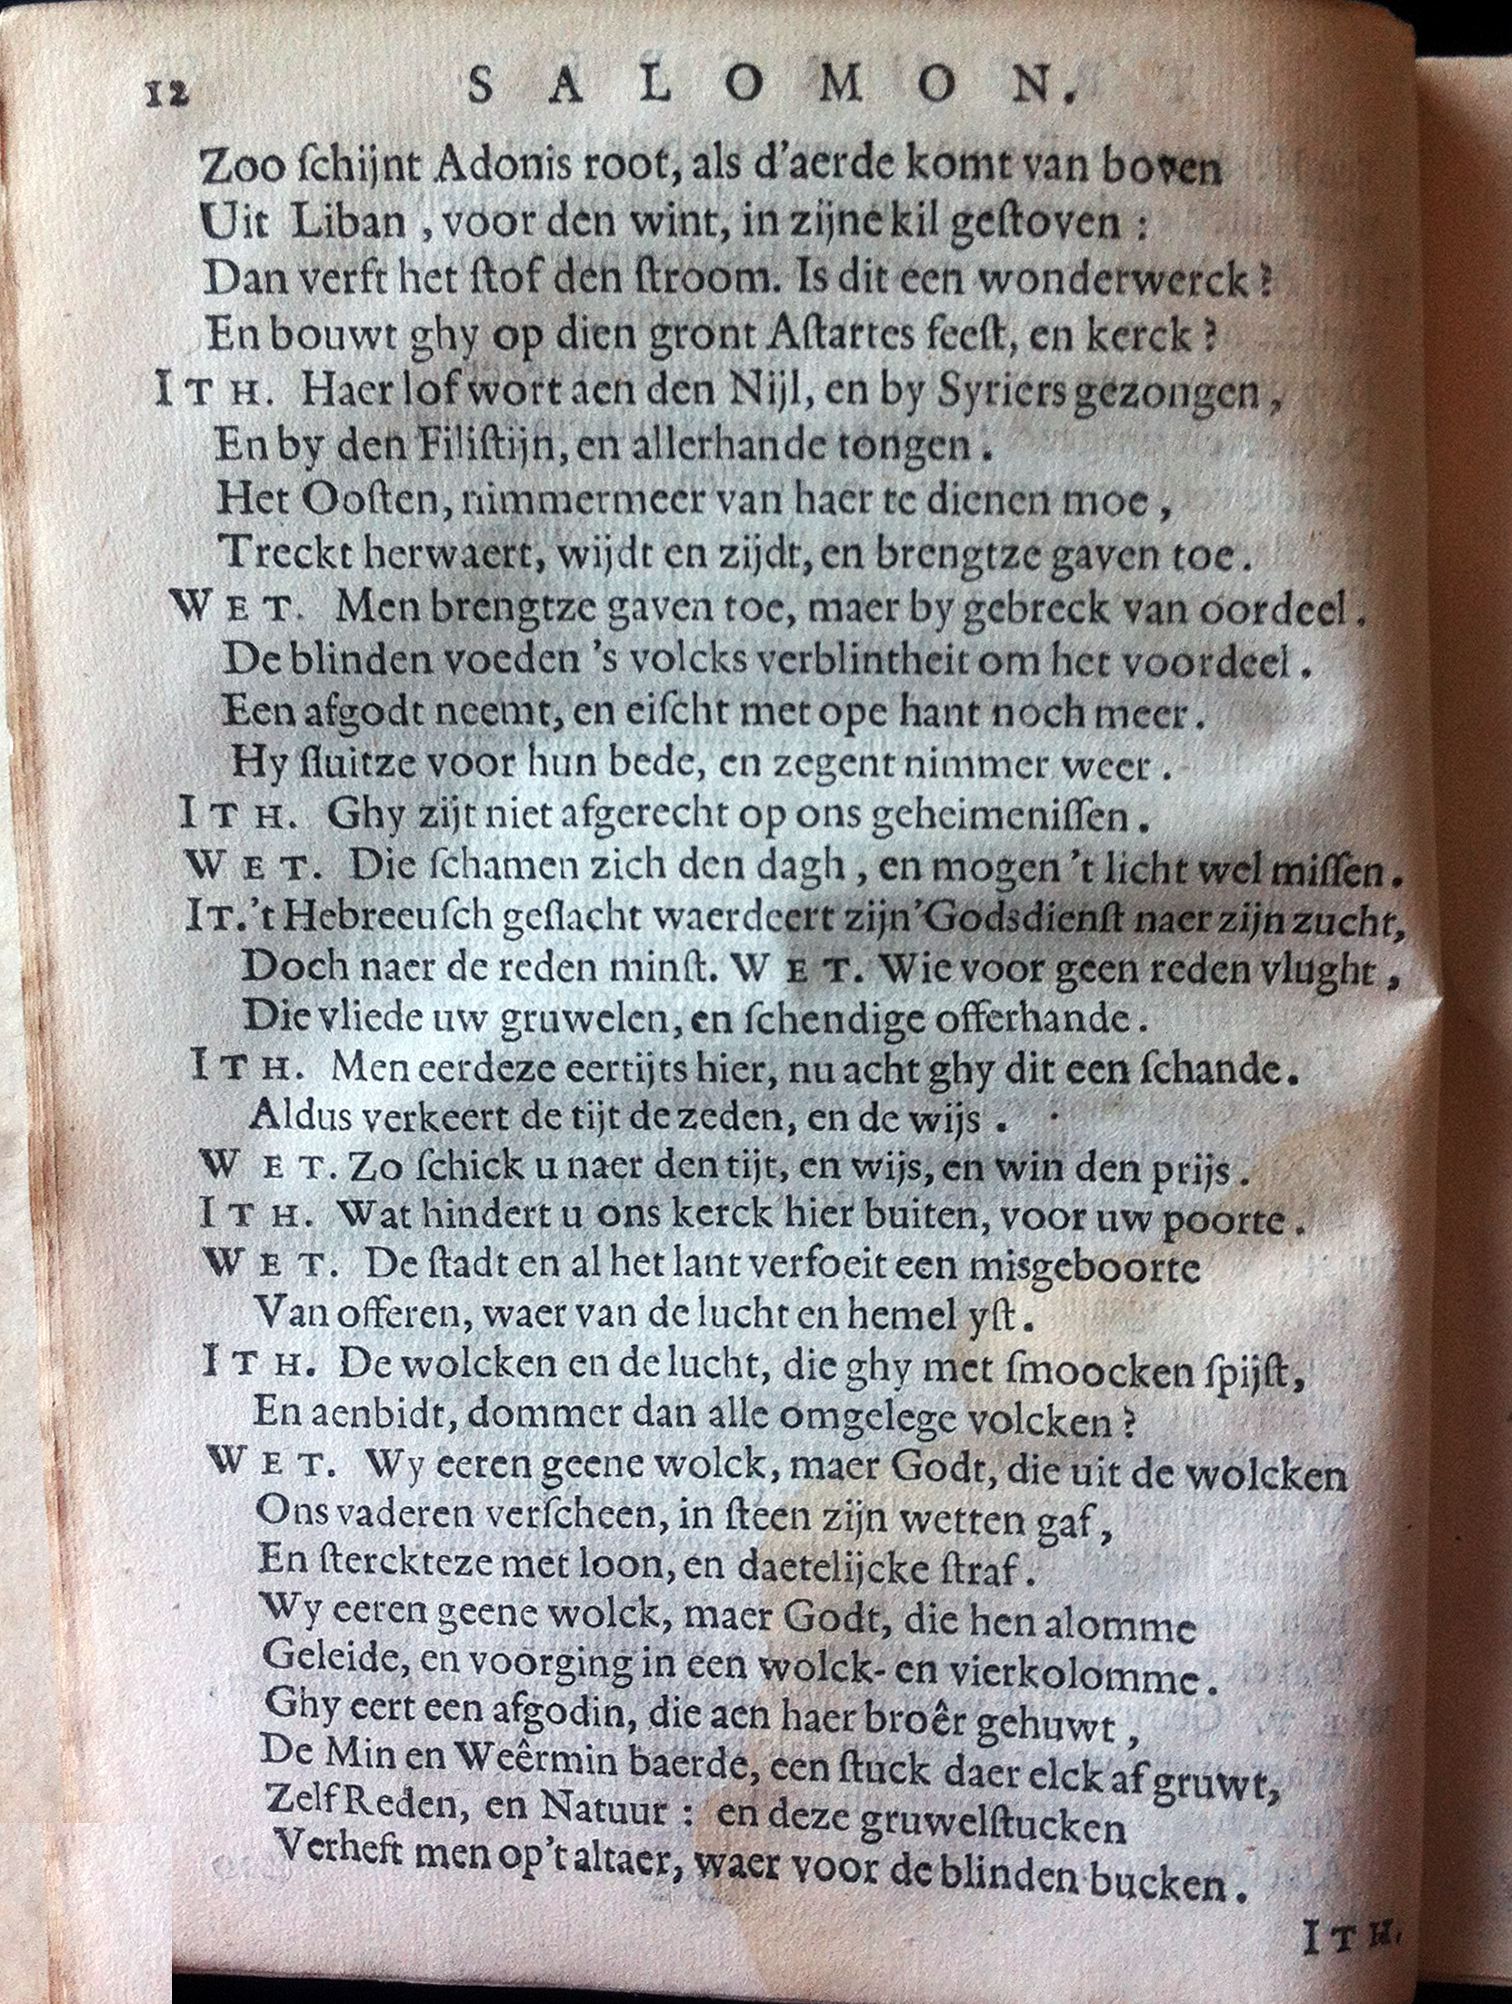 12 SALOMON.
Zoo ſchijnt Adonis root, als d'aerde komt van boven
Uit Liban, voor den wint, in zijne kil geſtoven:
Dan verft het ſtof den ſtroom. Is dit een wonderwerck?
En bouwt ghy op dien gront Aſtartes feeſt, en kerck?
ITH. Haer lof wort aen den Nijl, en by Syriers gezongen,
En by den Filiſtijn, en allerhande tongen.
Het Ooſten, nimmermeer van haer te dienen moe,
Treckt herwaert, wijdt en zijdt, en brengtze gaven toe.
WET. Men brengtze gaven toe, maer by gebreck van oordeel.
De blinden voeden 's volcks verblintheit om het voordeel.
Een afgodt neemt, en eiſcht met ope hant noch meer.
Hy ſluitze voor hun bede, en zegent nimmer weer.
ITH. Ghy zijt niet afgerecht op ons geheimeniſſen.
WET. Die ſchamen zich den dagh, en mogen 't licht wel miſſen.
IT. 't Hebreeuſch geſlacht waerdeert zijn' Godsdienſt naer zijn zucht,
Doch naer de reden minſt. WET. Wie voor geen reden vlught,
Die vliede uw gruwelen, en ſchendige offerhande.
ITH. Men eerdeze eertijts hier, nu acht ghy dit een ſchande.
Aldus verkeert de tijt de zeden, en de wijs.
WET. Zo ſchick u naer den tijt, en wijs, en win den prijs.
ITH. Wat hindert u ons kerck hier buiten, voor uw poorte.
WET. De ſtadt en al het lant verfoeit een misgeboorte
Van offeren, waer van de lucht en hemel yſt.
ITH. De wolcken en de lucht, die ghy met ſmoocken ſpijſt,
En aenbidt, dommer dan alle omgelege volcken?
WET. Wy eeren geene wolck, maer Godt, die uit de wolcken
Ons vaderen verſcheen, in ſteen zijn wetten gaf,
En ſterckteze met loon, en daetelijcke ſtraf.
Wy eeren geene wolck, maer Godt, die hen alomme
Geleide, en voorging in een wolck- en vierkolomme.
Ghy eert een afgodin, die aen haer broêr gehuwt,
De Min en Weêrmin baerde, een ſtuck daer elck af gruwt,
Zelf Reden, en Natuur: en deze gruwelſtucken
Verheft men op't altaer, waer voor de blinden bucken.
ITH.